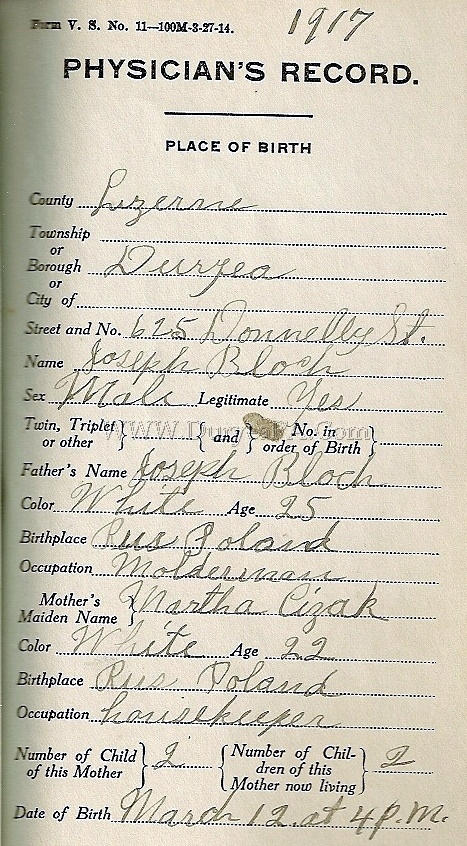 Form V. S. No. 11—100M-3-27-14.
1917
PHYSICIAN'S RECORD.
PLACE OF BIRTH
County Luzerne
Township
or
Borough Duryea
or
City of
Street and No. 625 Donnelly St.
Name Joseph Bloch
Sex Male Legitimate Yes
Twin, Triplet or other } { and } No. in order of Birth }
WWW.DuryeaPA.Com
Father's Name Joseph Bloch
Color White Age 25
Birthplace Rus Poland
Occupation Molderman
Mother's Maiden Name } Martha Cizak
Color White Age 22
Birthplace Rus Poland
Occupation housekeeper
Number of Child of this Mother } 2 { Number of Children of this Mother now living } 2
Date of Birth March 12. at 4 P.M.